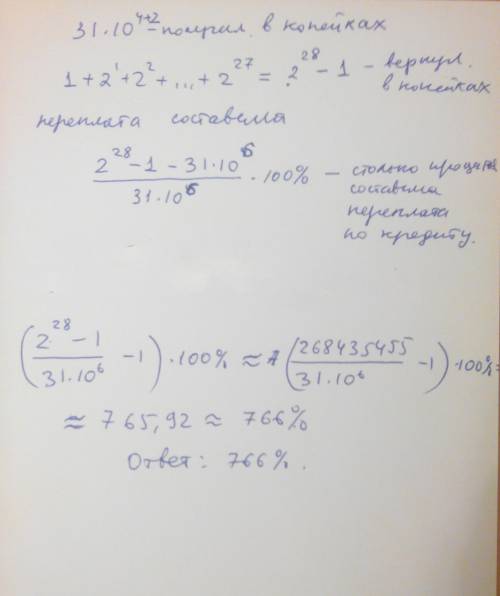 31·10⁴⁺² – получил в копейках
1 + 2¹ + 2² + ... + 2²⁷ = 2²⁸ − 1 – вернул
в копейках
переплата составила
(2²⁸ − 1 − 31·10⁶) / (31·10⁶) · 100% – столько процентов
составила
переплата
по кредиту.
((2²⁸ − 1) / (31·10⁶) − 1) · 100% ≈ (268435455 / (31·10⁶) − 1) · 100% ≈
≈ 765,92 ≈ 766%
Ответ: 766%.